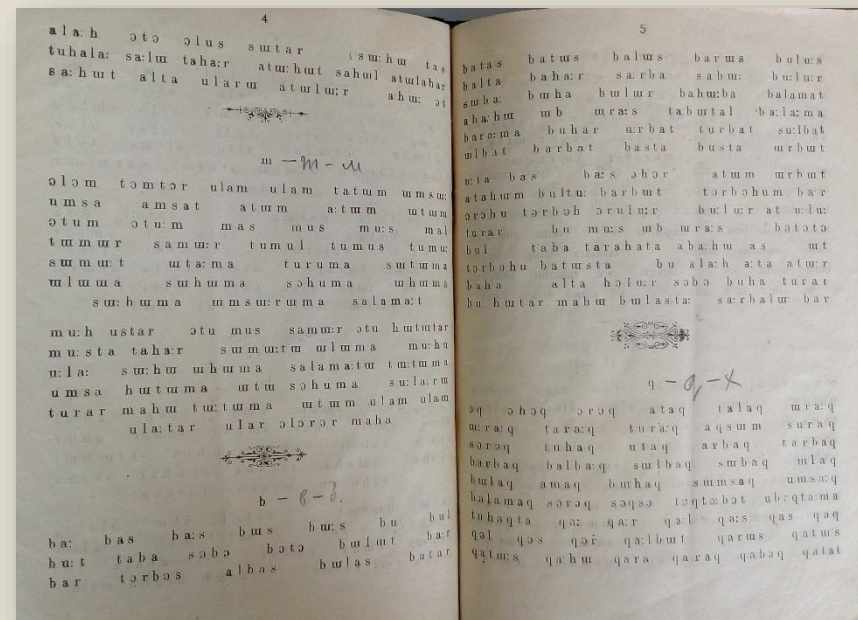 4
alaːh ɔtɔ ɔlus sɯtar sɯːhɯ tas
tuhalaː saːlɯ tahaːr atɯːhɯt sahɯl atɯlahar
saːhɯt alta ularɯ atɯlɯːr ahɯː ɔt
m – m – м
ɔlɔm tɔmtɔr ulam ulam tatɯm ɯmsɯː
umsa amsat atɯm aːtɯm ɯtɯm
ɔtum ɔtuːm mas mus muːs mal
tɯmɯr samɯːr tumul tumus tumuː
sɯmɯːt ɯtaːma turuma sɯtɯma
ɯlɯɯa sɯhɯma sɔhuma ɯhɯma
sɯːhɯma ɯmsɯːrɯma salamaːt
muːh ustar ɔtu mus samɯːr ɔtu hɯtɯtar
muːsta tahaːr sɯmɯːtɯ ɯlɯma muːhu
uːlaː sɯːhɯ ɯhɯma salamaːtɯ tɯːtɯma
umsa hɯtɯma ɯtɯ sɔhuma suːlaːrɯ
turar mahɯ tɯːtɯma ɯtɯm ulam ulam
ulaːtar ular ɔlɔrɔr maha
b – в – б.
baː bas baːs bɯs bɯːs bu bul
buːt taba sɔbɔ bɔtɔ bɯlɯt baːr
bar tɔrbɔs albas bɯlas batar
5
batas batɯs balɯs barɯs buluːs
balta bahaːr saːrba sabɯː buːluːr
sɯbaː bɯha bɯlɯr bahɯːba balamat
abaːhɯ ɯb ɯraːs tabɯtal baːlaːma
baraːma buhar urbat turbat suːlbat
ɯlbat barbat basta busta ɯrbɯt
uːta bas baːs ɔhɔr atɯm ɯrbɯt
atahɯm bultuː barbɯt tɔrbɔhum baːr
ɔrɔhu tɔrbɔh ɔruluːr buːluːr at uːluː
turar bu muːs ɯb ɯraːs bɔtɔtɔ
bul taba tarahata abaːhɯ as ɯt
tɔrbɔhu batɯsta bu alaːh aːta atɯːr
baha alta hɔluːr sɔbɔ buha turar
bu hɯtar mahɯ bɯlastaː saːrbalɯː bar
q – q – х
ɔq ɔhɔq ɔrɔq ataq talaq ɯraːq
ɯːraːq taraːq turaːq aqsɯm suraq
sɔrɔq tuhaq utaq arbaq tarbaq
barbaq balbaːq sɯlbaq sɯbaq ɯlaq
bɯlaq amaq bɯhaq sɯmsaq umsaːq
balamaq sɔrɔq sɔqsɔ tɔqtɔːbɔt ubaːqtaːma
tuhaqta qaː qaːr qaːl qaːs qas qaq
qɔl qɔs qɔr qaːlbɯt qarɯs qatɯs
qatɯːs qahɯ qara qaraq qabaq qatat